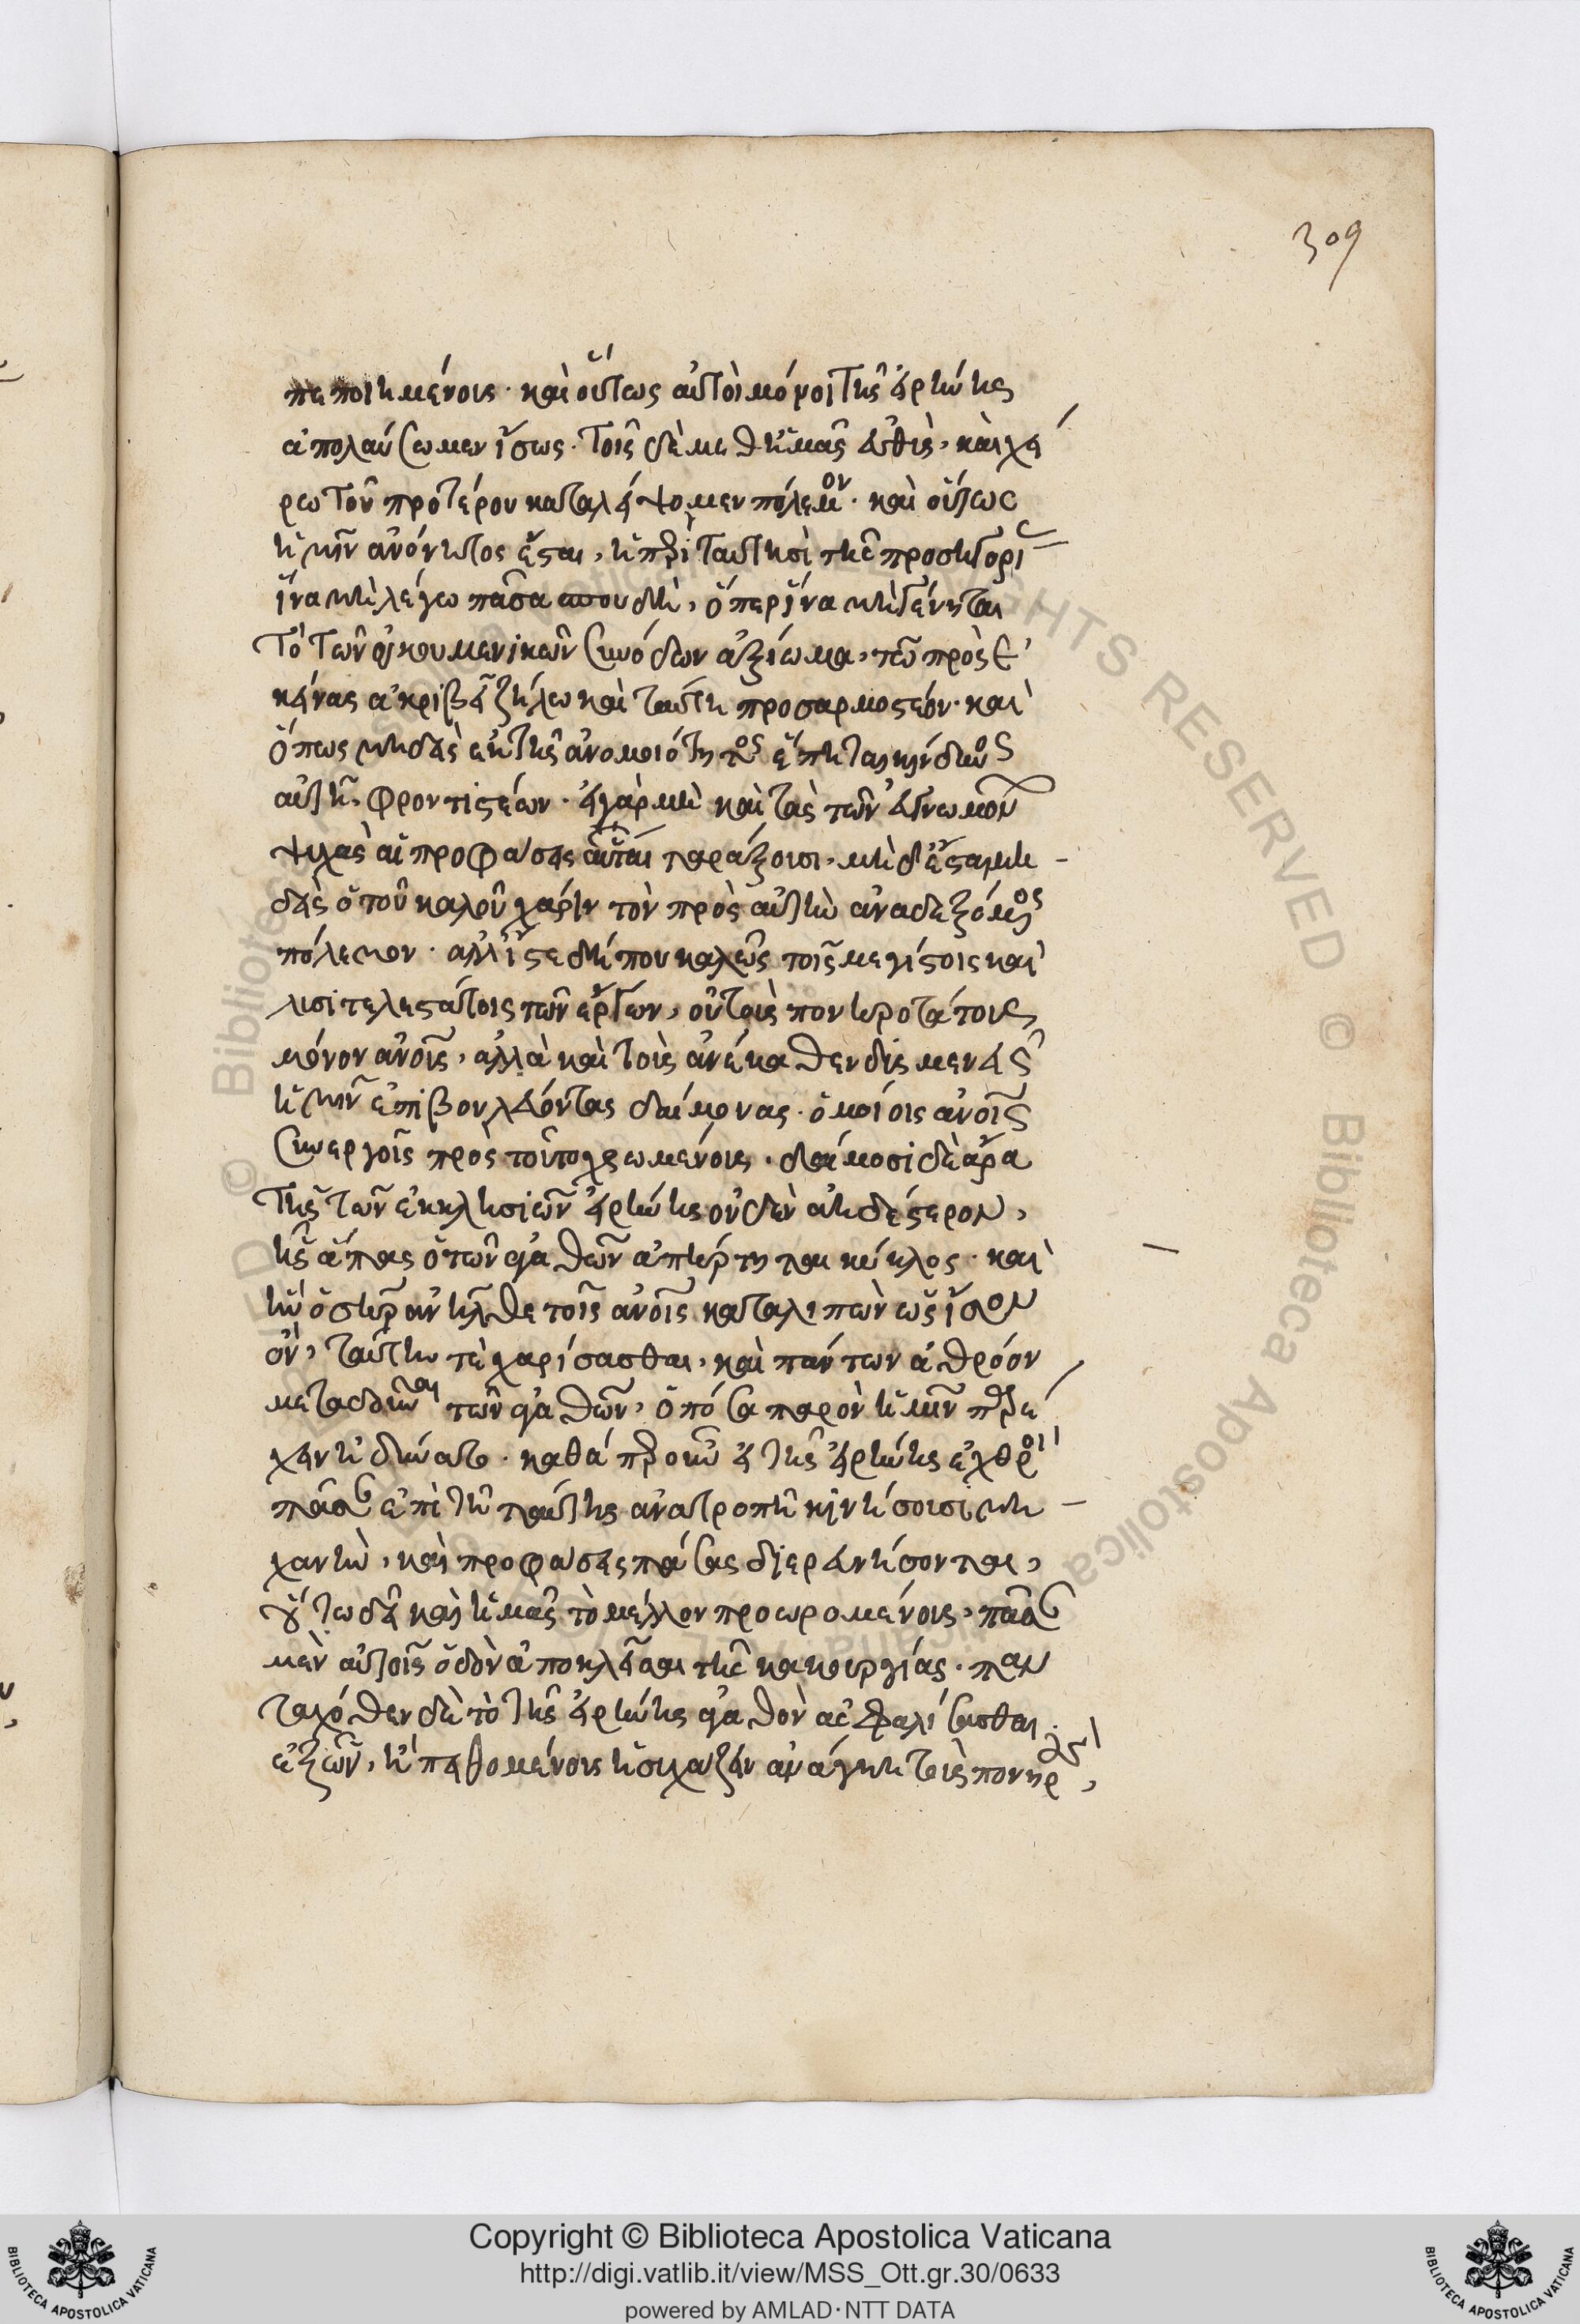 309
πεποιημένοις· καὶ οὕτως αὐτοὶ μόνοι τῆς εἰρήνης
ἀπολαύσωμεν ἴσως· τοῖς δὲ μεθ' ἡμᾶς εὐθὺς, καὶ χεί
ρω τοῦ προτέρου καταλείψομεν πόλεμον· καὶ οὕτως
ἡμῖν ἀνόνητος ἔσται, ἡ περὶ ταύτησὶ τῆς προσηγορί
ἵνα μὴ λέγω πᾶσα σπουδὴ, ὅπερ ἵνα μὴ γένηται
τὸ τῶν οἰκουμενικῶν συνόδων ἀξίωμα, τῶ πρὸς ἐ
κείνας ἀκριβεῖ ζήλω καὶ ταύτη προσαρμοστέον· καὶ
ὅπως μηδεὶς ἐκ τῆς ἀνομοιότητος ἕπηται κίνδυνος
αὐτῆ, φροντιστέων· εἰ γὰρ μὴ καὶ τὰς τῶν εὐγνωμόν
ψιλαὶ αἱ προφάσεις αὗται ταράξοισι, μὴ δ' ἔσται μη
δεὶς ὁ τοῦ καλοῦ χάριν τὸν πρὸς αὐτὴν ἀναδεξόμενος
πόλεμον· ἀλλ' ἴστε δήπου καλῶς τοῖς μεγίστοις καὶ
λυσιτελεστάτοις τῶν ἔργων, οὐ τοὺς πονηροτάτους
μόνον ἀνοῖς, ἀλλὰ καὶ τοὺς ἀνέκαθεν δυσμενεῖς
ἡμῖν ἐπιβουλεύοντας δαίμονας· ὁμοίοις ἀνοῖς
συνεργοῖς πρὸς τοῦτο χρωμένοις· δαίμοσι δὲ ἄρα
τῆς τῶν ἐκκλησιῶν εἰρήνης οὐδὲν ἀηδέστερον,
ἧς ἅπας ὁ τῶν ἀγαθῶν ἀπήρτηται κύκλος· καὶ
ἣν ὁ σωτὴρ ἀνῆλθε τοῖς ἀνοῖς καταλιπὼν ὡς ἴσον
ὂν, ταύτην τε χαρίσασθαι, καὶ πάντων ἀθρόον
μεταδοῦναι τῶν ἀγαθῶν, ὁπόσα παρὸν ἡμῖν παρέ
χειν ἠδύνατο· καθάπερ οὖν οἱ τῆς εἰρήνης ἐχθροὶ
πᾶσαν ἐπὶ τῆ ταύτης ἀνατροπῆ κινήσουσι μη
χανὴν, καὶ προφάσεις πάσας διερευνήσονται,
οὕτω δεῖ καὶ ἡμᾶς τὸ μέλλον προορομένοις, πᾶσαν
μὲν αὐτοῖς ὁδὸν ἀποκλεῖσαι τῆς κακουργίας· παν
ταχόθεν δὲ τὸ τῆς εἰρήνης ἀγαθὸν ἀσφαλίσασθαι·
ἐξ ὧν, ἢ πειθομένοις ἡσυχάζειν ἀνάγκη τοὺς πονηροὺς,
Copyright © Biblioteca Apostolica Vaticana
http://digi.vatlib.it/view/MSS_Ott.gr.30/0633
powered by AMLAD·NTT DATA